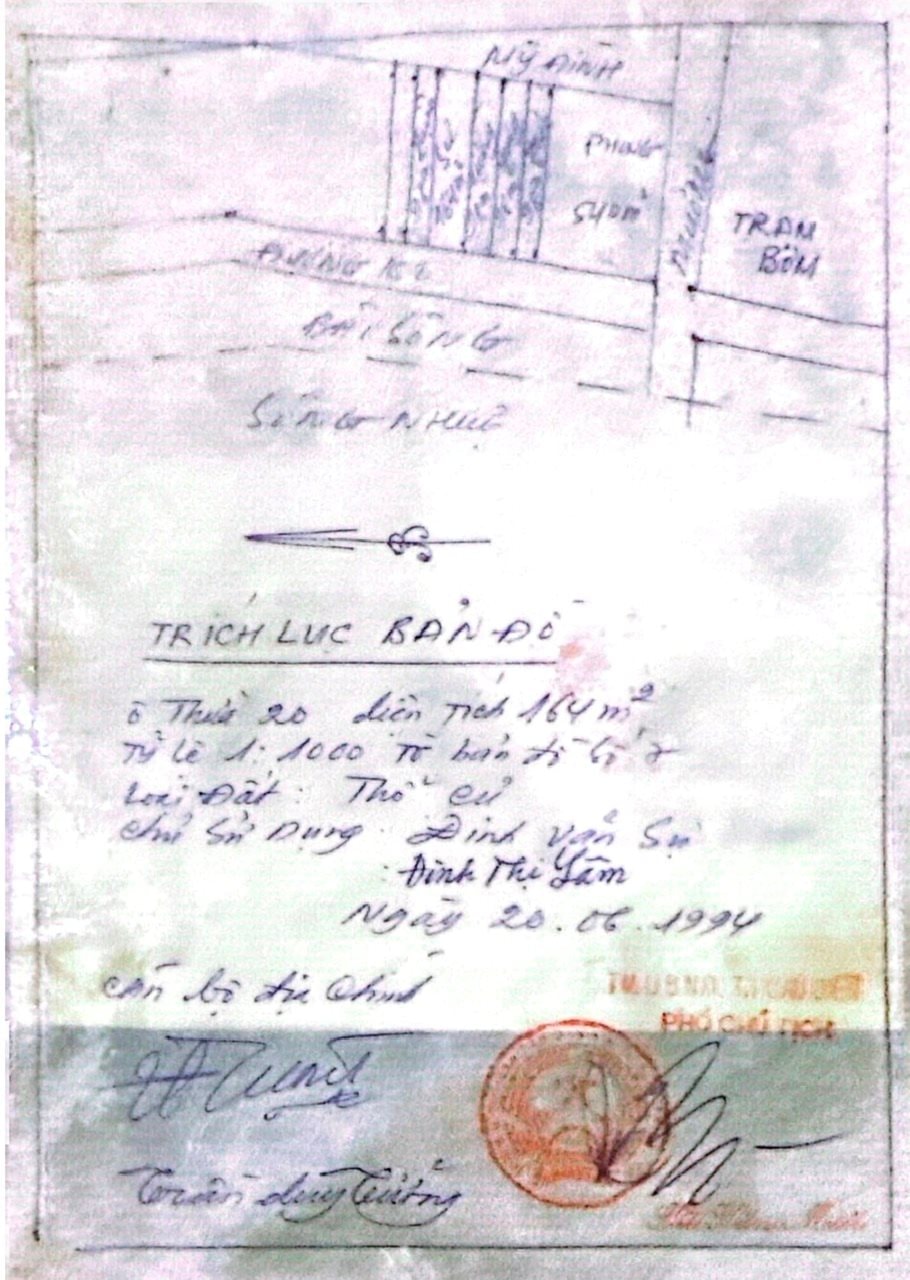 MỸ ĐÌNH
PHONG
540m²
ĐƯỜNG
TRẠM
BƠM
ĐƯỜNG
BÃI SÔNG
SÔNG NHUỆ
TRÍCH LỤC BẢN ĐỒ
Ô Thửa 20 diện Tích 164m²
Tỷ lệ 1:1000 Tờ bản đồ số 7
Loại Đất: Thổ cư
Chủ Sử Dụng: Đinh Văn Sự
: Đinh Thị Lâm
Ngày 20.06.1994
Cán bộ địa Chính
PHÓ CHỦ TỊCH